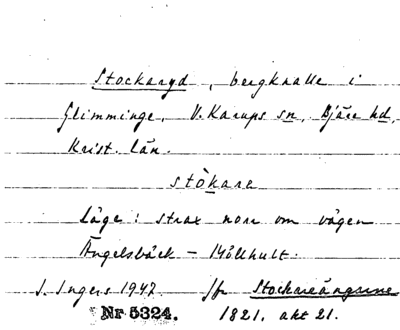 Stockaryd, bergknalle i
Glimminge, V. Karups sn, Bjäre hd,
Krist. län.
stòkare
Läge: strax norr om vägen
Ängelsbäck – Möllhult.
I. Ingers 1947 Jfr Stockareängarne
Nr 5324. 1821, akt 21.